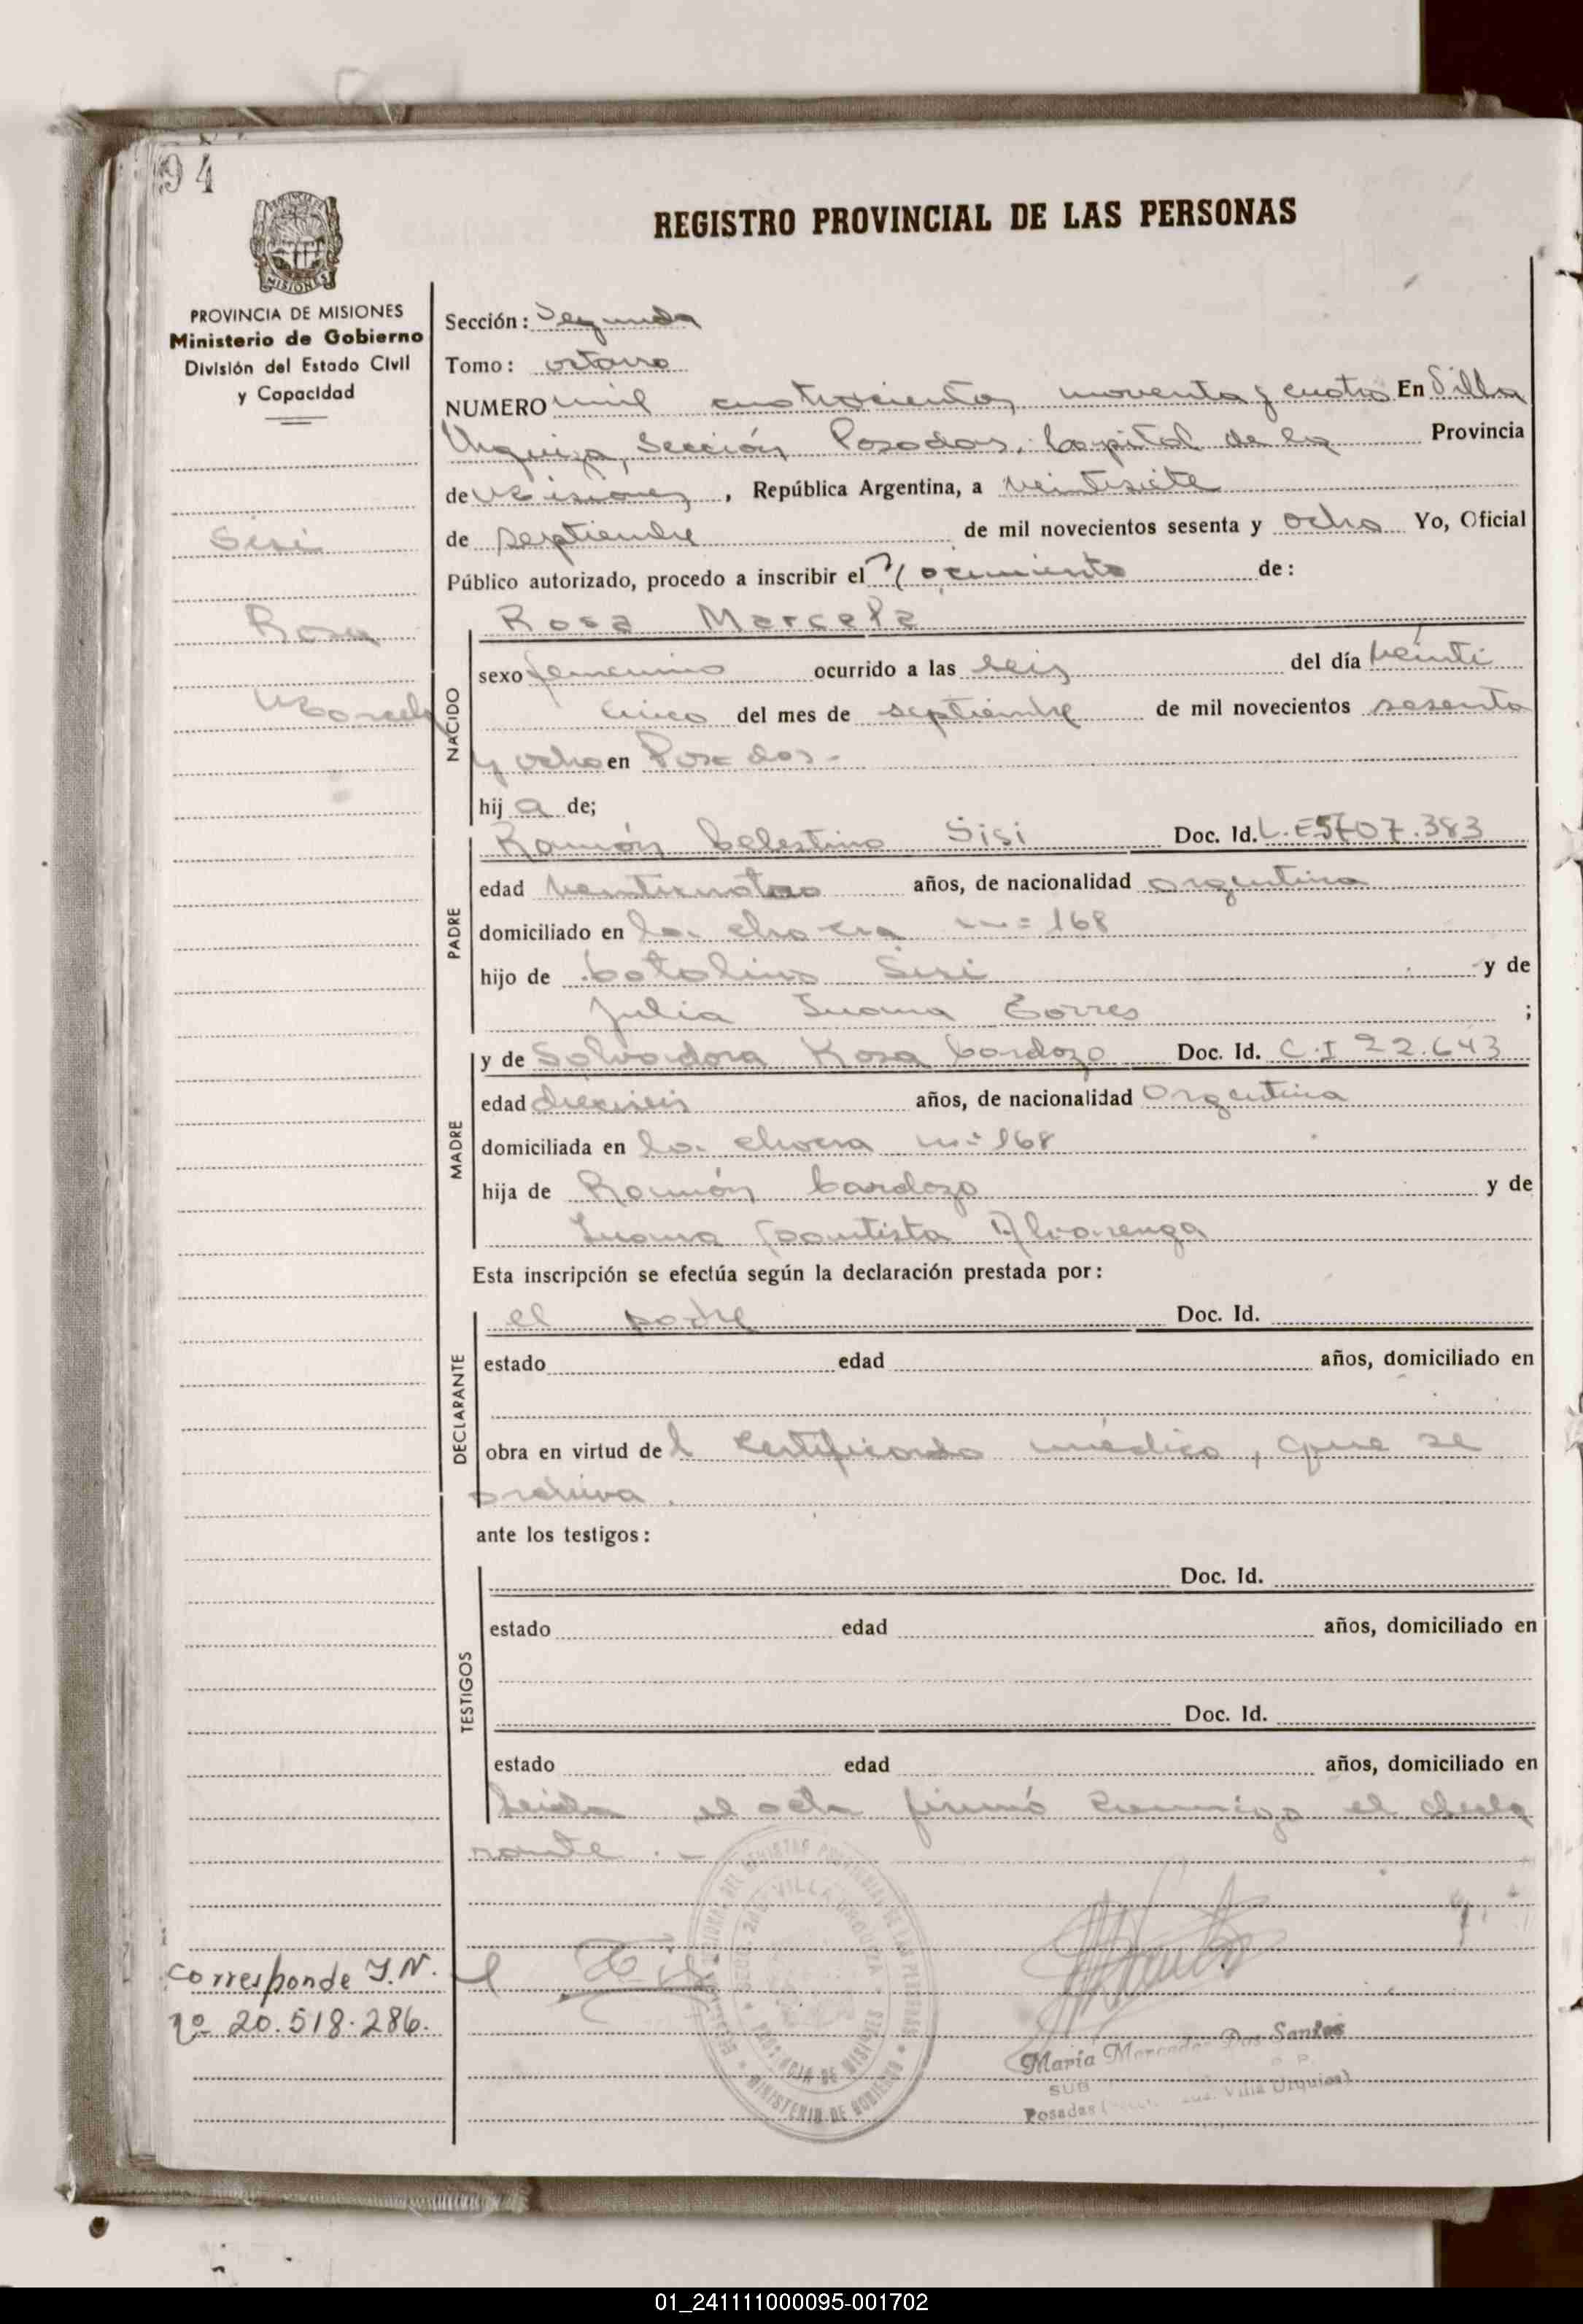 94
MISIONES
PROVINCIA DE MISIONES
Ministerio de Gobierno
División del Estado Civil
y Capacidad
Sisi
Rosa
Marcela
REGISTRO PROVINCIAL DE LAS PERSONAS
Sección: Segunda
Tomo: octavo
NUMERO mil cuatrocientos noventa y cuatro En Villa
Urquiza, Sección Posadas, Capital de la Provincia
de Misiones, República Argentina, a veintisiete
de septiembre de mil novecientos sesenta y ocho Yo, Oficial
Público autorizado, procedo a inscribir el Nacimiento de:
Rosa Marcela
NACIDO
sexo femenino ocurrido a las seis del día veinti
cinco del mes de septiembre de mil novecientos sesenta
y ocho en Posadas-
hij a de;
PADRE
Ramón Celestino Sisi Doc. Id. L.E 5707.383
edad veinticuatro años, de nacionalidad argentina
domiciliado en la chacra nº 168
hijo de Catalino Sisi y de
Julia Juana Torres ;
MADRE
y de Salvadora Rosa Cardozo Doc. Id. C.I 22.643
edad dieciseis años, de nacionalidad Argentina
domiciliada en la chacra nº 168
hija de Ramón Cardozo y de
Juana Bautista Alvarenga
Esta inscripción se efectúa según la declaración prestada por:
DECLARANTE
el padre Doc. Id.
estado edad años, domiciliado en
obra en virtud de l certificado médico, que se
archiva.
ante los testigos:
TESTIGOS
Doc. Id.
estado edad años, domiciliado en
Doc. Id.
estado edad años, domiciliado en
Leida el acta firmó conmigo el decla
rante.-
corresponde I.N.
nº 20.518.286.
VILLA URQUIZA
PROVINCIA DE MISIONES
MINISTERIO DE GOBIERNO
María Mercedes Dos Santos
SUB
Posadas Villa Urquiza)
01_241111000095-001702